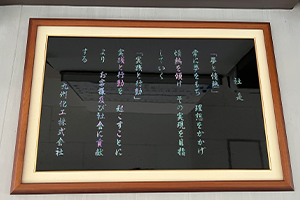 社是
「夢と情熱」
常に夢をもち 理想をかかげ
情熱を傾け その実現を目指
していく
「実践と行動」
実践と行動を 起こすことに
より お客様及び社会に貢献
する
九州化工株式会社